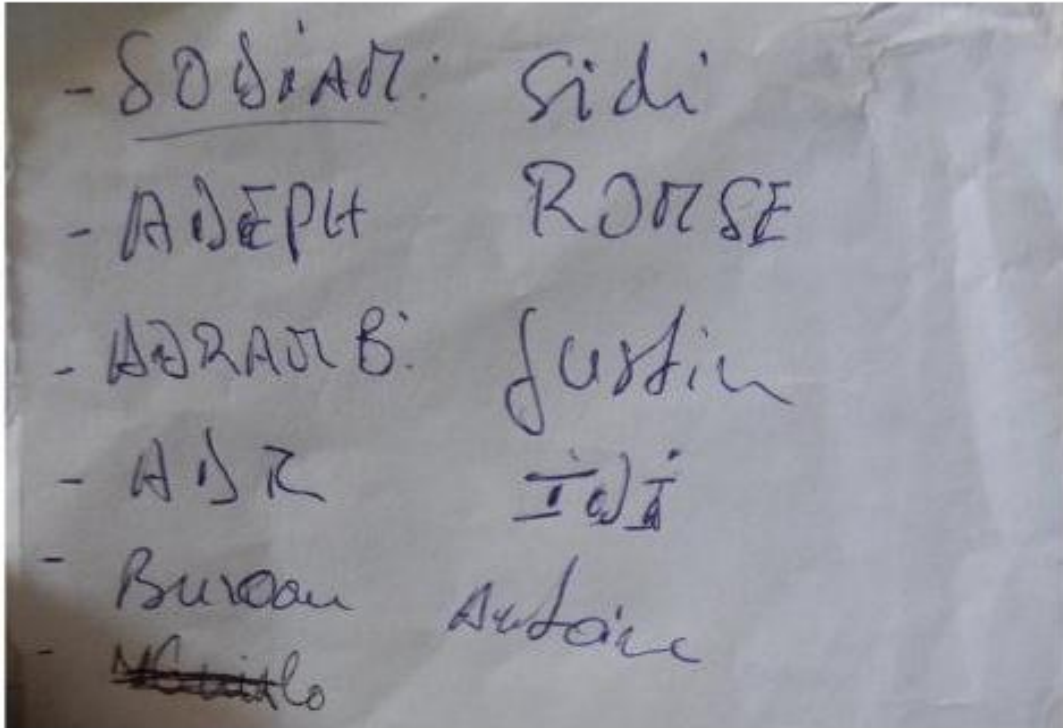 - SODiAM: Sidi
- ADEPH ROMSE
- ADRAM B: Justin
- ADR IDI
- Bureau Antoine
-